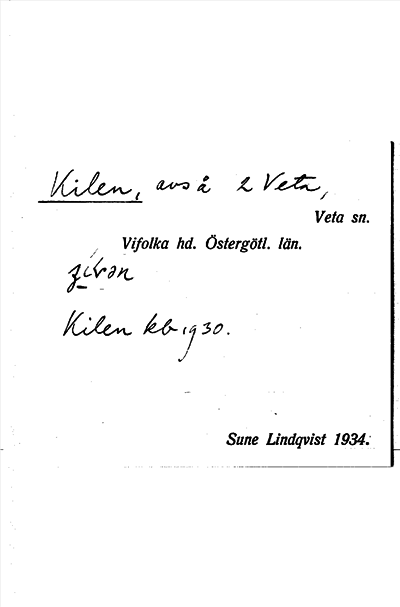 Kilen, avs å 2 Veta,
Veta sn.
Vifolka hd. Östergötl. län.
Kilen kb 1930.
Sune Lindqvist 1934.